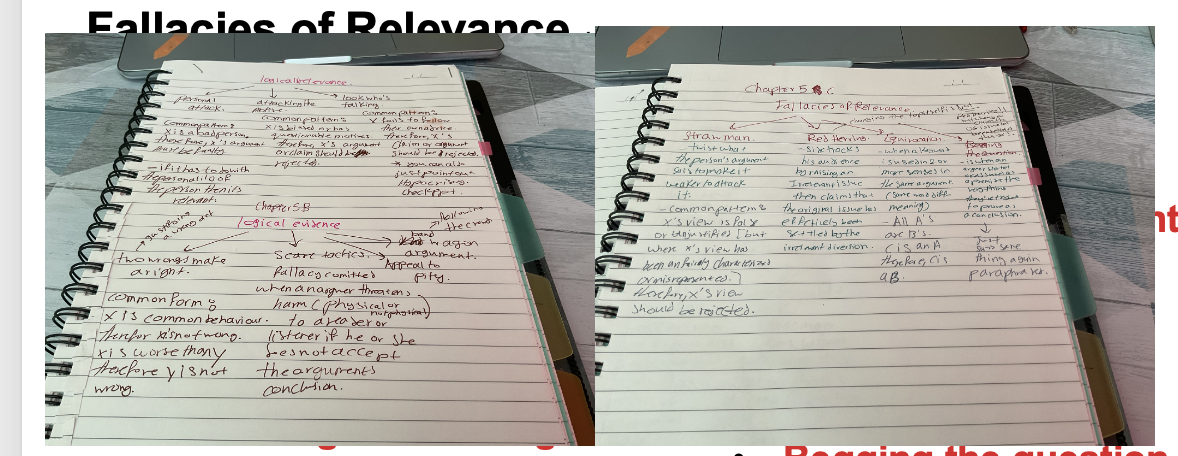 Fallacies of Relevance
logical relevance
personal
attack.
attacking the
motive
look who's
talking.
common pattern:
x is a bad person,
therefore, x's argument
must be faulty
common pattern:
x is biased or has
questionable motives
therefore, x's argument
or claim should be
rejected.
common pattern:
x fails to follow
their own advice
therefore, x's
claim or argument
should be rejected.
* you can also
just point out
- if it has to do with
the personal
the person then it's
relevant.
Chapter 5 B
logical evidence
→ justifying
a wrong act
two wrongs make
a right.
Scare tactics.
band wagon
argument.
following
the crowd
Appeal to
pity.
common form:
x is common behaviour.
therefor x is not wrong.
x is worse than y
therefore y is not
wrong.
fallacy comitted
when an arguer threatens
harm (physical or
nonphysical)
to a reader or
listener if he or she
does not accept
the arguments
conclusion.
Chapter 5 C
Fallacies of Relevance
Straw man.
- twist what
the person's argument
so its to make it
weaker to attack
it.
- common pattern:
x's view is false
or unjustified [but
where x's view has
been unfairly characterized
or misrepresented.]
therefore, x's view
should be rejected.
Red Herring
- side tracks
his audience
by raising an
irrelevant issue
then claims that
the original issue has
effectively been
settled by the
irrelevant diversion.
Equivocation
- when a key word
is used in 2 or
more senses in
the same argument.
(same word diff
meaning)
All A's
are B's.
C is an A
therefore, C is
a B.
Begging
the question
- is when an
a conclusion.
Just
same
thing again
paraphrates.
nt
Begging the question